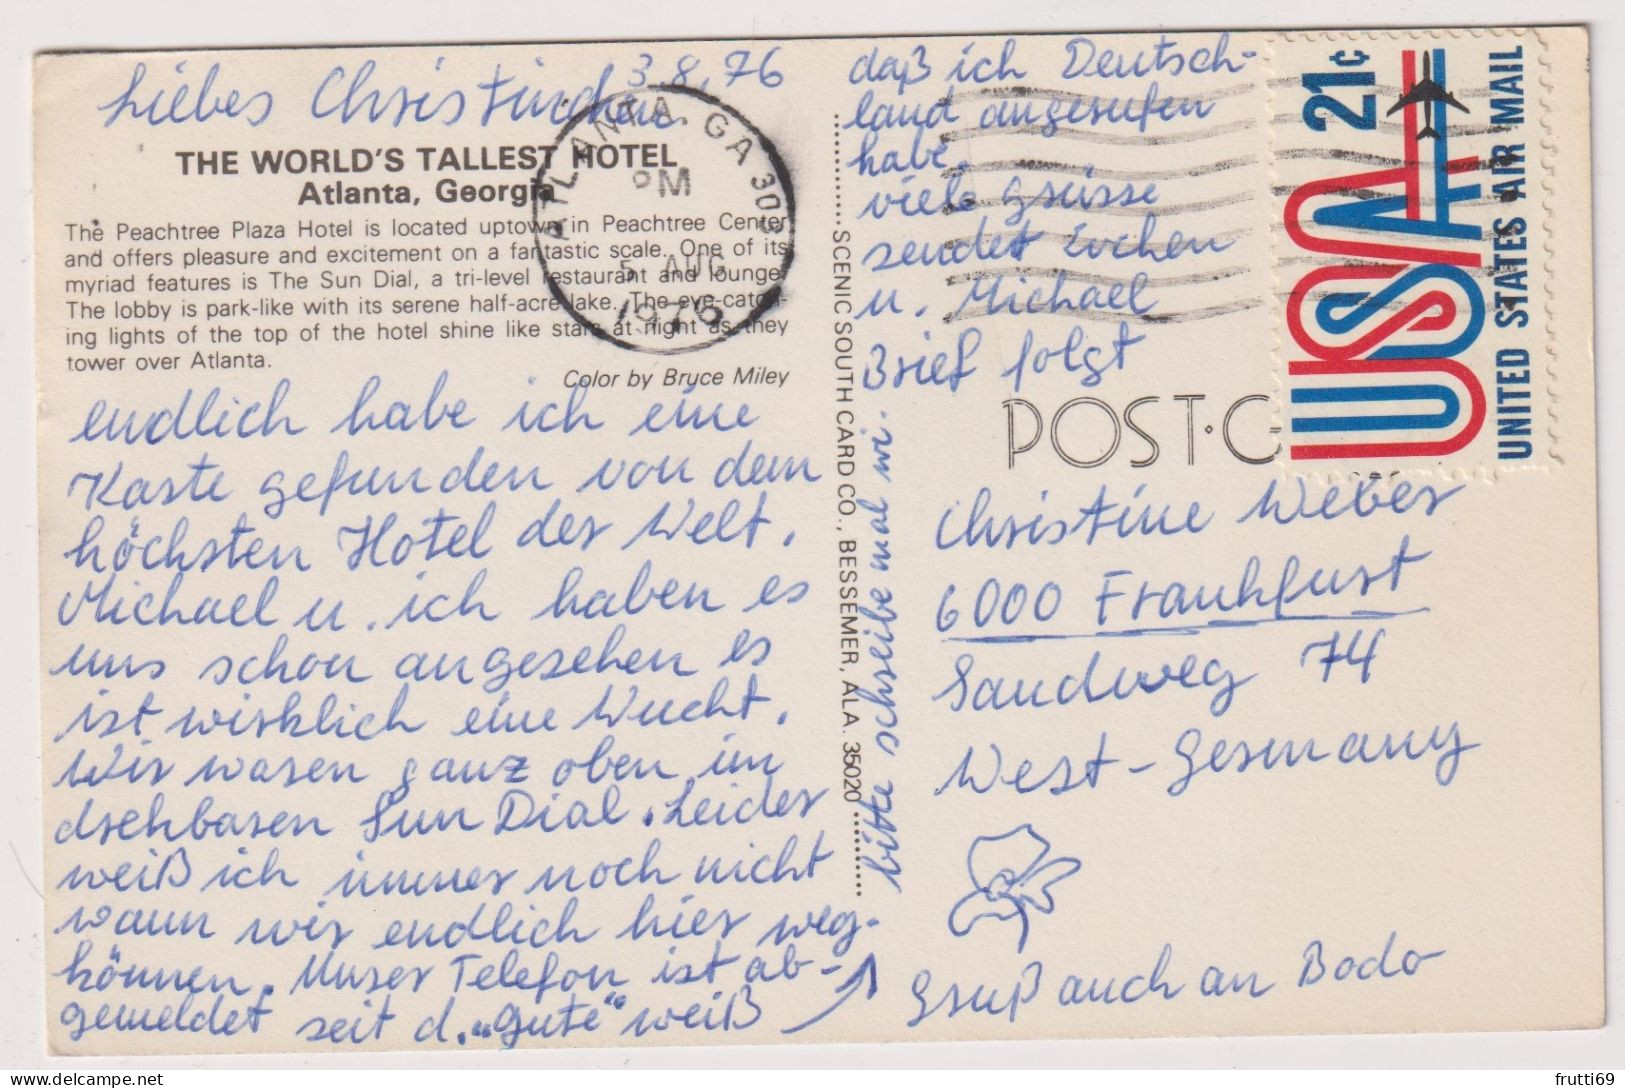 3.8.76
Liebes Christinchen
THE WORLD'S TALLEST HOTEL
Atlanta, Georgia
The Peachtree Plaza Hotel is located uptown in Peachtree Center
and offers pleasure and excitement on a fantastic scale. One of its
myriad features is The Sun Dial, a tri-level restaurant and lounge.
The lobby is park-like with its serene half-acre lake. The eye-catch-
ing lights of the top of the hotel shine like stars at night as they
tower over Atlanta.
Color by Bruce Miley
endlich habe ich eine
Karte gefunden von dem
höchsten Hotel der Welt.
Michael u. ich haben es
uns schon angesehen es
ist wirklich eine Wucht.
Wir waren ganz oben im
drehbaren Sun Dial. Leider
weiß ich immer noch nicht
wann wir endlich hier weg-
können. Unser Telefon ist ab-
gemeldet seit d. „gute“ weiß
daß ich Deutsch-
land angerufen
habe.
viele Grüsse
sendet Evchen
u. Michael
Brief folgt
bitte schreibe mal wi.
SCENIC SOUTH CARD CO., BESSEMER, ALA. 35020
ATLANTA, GA 303
PM
5 AUG
1976
21¢
USA
UNITED STATES AIR MAIL
POST·C
Christine Weber
6000 Frankfurt
Sandweg 74
West-Germany
Gruß auch an Bodo
frutti69